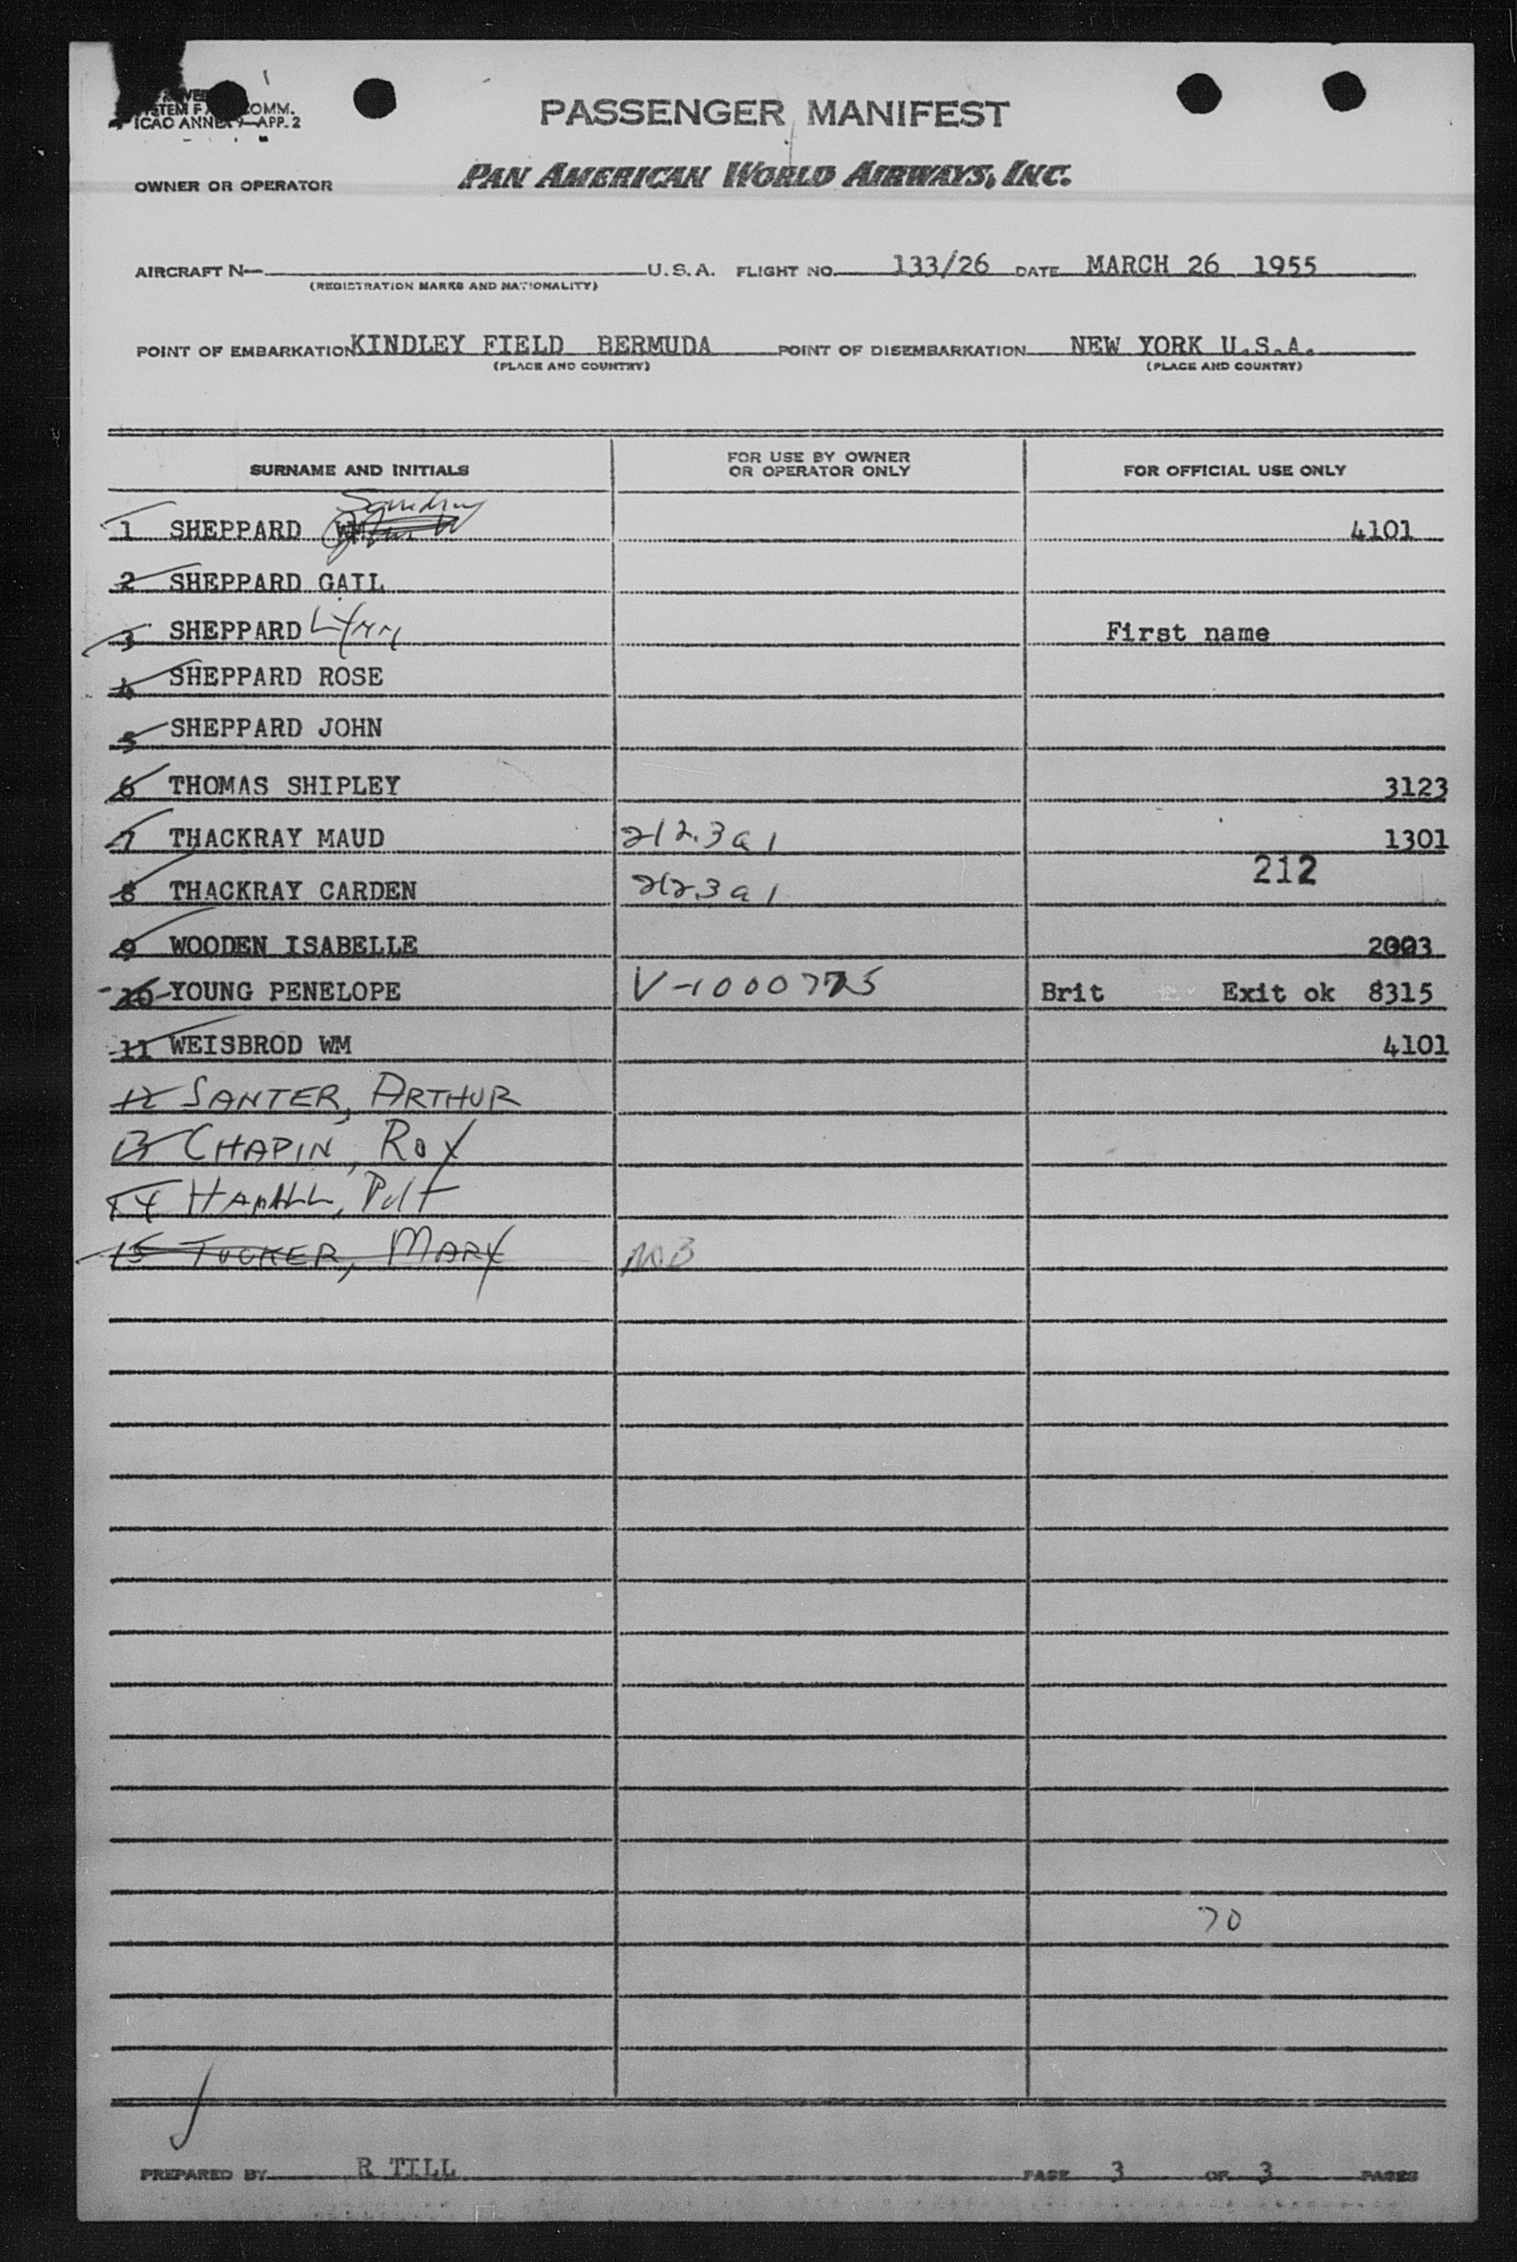 COMM.
ICAO ANNEX 9—APP. 2
PASSENGER MANIFEST
OWNER OR OPERATOR PAN AMERICAN WORLD AIRWAYS, INC.
AIRCRAFT N— U.S.A. FLIGHT NO. 133/26 DATE MARCH 26 1955
(REGISTRATION MARKS AND NATIONALITY)
POINT OF EMBARKATION KINDLEY FIELD BERMUDA POINT OF DISEMBARKATION NEW YORK U.S.A.
(PLACE AND COUNTRY) (PLACE AND COUNTRY)
SURNAME AND INITIALS FOR USE BY OWNER OR OPERATOR ONLY FOR OFFICIAL USE ONLY
1 SHEPPARD WM 4101
2 SHEPPARD GAIL
3 SHEPPARD Lynn First name
4 SHEPPARD ROSE
5 SHEPPARD JOHN
6 THOMAS SHIPLEY 3123
7 THACKRAY MAUD 212.3a1 1301
212
8 THACKRAY CARDEN 212.3a1
9 WOODEN ISABELLE 2003
10 YOUNG PENELOPE V-1000775 Brit Exit ok 8315
11 WEISBROD WM 4101
12 SANTER, ARTHUR
13 CHAPIN, ROY
14 HAMILL, Pat
15 TUCKER, MARY NOB
70
PREPARED BY R TILL PAGE 3 OF 3 PAGES